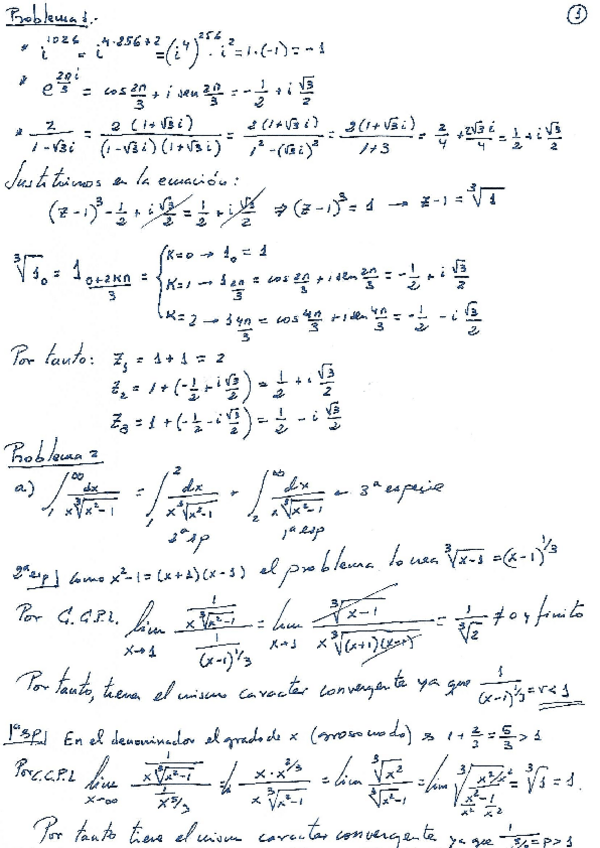 Problema 1.- 1
* i^1026 = i^(4·256+2) = (i^4)^256 · i^2 = 1·(-1) = -1
* e^(2πi/3) = cos 2π/3 + i sen 2π/3 = -1/2 + i √3/2
* 2/(1-√3i) = 2(1+√3i)/((1-√3i)(1+√3i)) = 2(1+√3i)/(1²-(√3i)²) = 2(1+√3i)/(1+3) = 2/4 + 2√3i/4 = 1/2 + i √3/2
Sustituimos en la ecuación:
(z-1)³ - 1/2 + i √3/2 = 1/2 + i √3/2 ⇒ (z-1)³ = 1 → z-1 = ∛1
∛1₀ = 1_((0+2kπ)/3) = { K=0 → 1₀ = 1
K=1 → 1_(2π/3) = cos 2π/3 + i sen 2π/3 = -1/2 + i √3/2
K=2 → 1_(4π/3) = cos 4π/3 + i sen 4π/3 = -1/2 - i √3/2
Por tanto: z₁ = 1+1 = 2
z₂ = 1 + (-1/2 + i √3/2) = 1/2 + i √3/2
z₃ = 1 + (-1/2 - i √3/2) = 1/2 - i √3/2
Problema 2
a) ∫₁^∞ dx/(x∛(x²-1)) = ∫₁² dx/(x∛(x²-1)) + ∫₂^∞ dx/(x∛(x²-1)) ← 3ª especie
2ª esp 1ª esp
2ª esp] como x²-1 = (x+1)(x-1) el problema lo crea ∛(x-1) = (x-1)^(1/3)
Por C.C.P.L. lim x→1 (1/(x∛(x²-1)))/(1/(x-1)^(1/3)) = lim x→1 ∛(x-1)/(x∛((x+1)(x-1))) = 1/∛2 ≠ 0 y finito
Por tanto, tienen el mismo caracter convergente ya que 1/(x-1)^(1/3) = r < 1
1ª esp] En el denominador el grado de x (grosso modo) es 1 + 2/3 = 5/3 > 1
Por C.C.P.L lim x→∞ (1/(x∛(x²-1)))/(1/x^(5/3)) = lim x·x^(2/3)/(x∛(x²-1)) = lim ∛x²/∛(x²-1) = lim ∛((x²/x²)/(x²/x² - 1/x²)) = ∛1 = 1.
Por tanto tiene el mismo caracter convergente ya que = p > 1